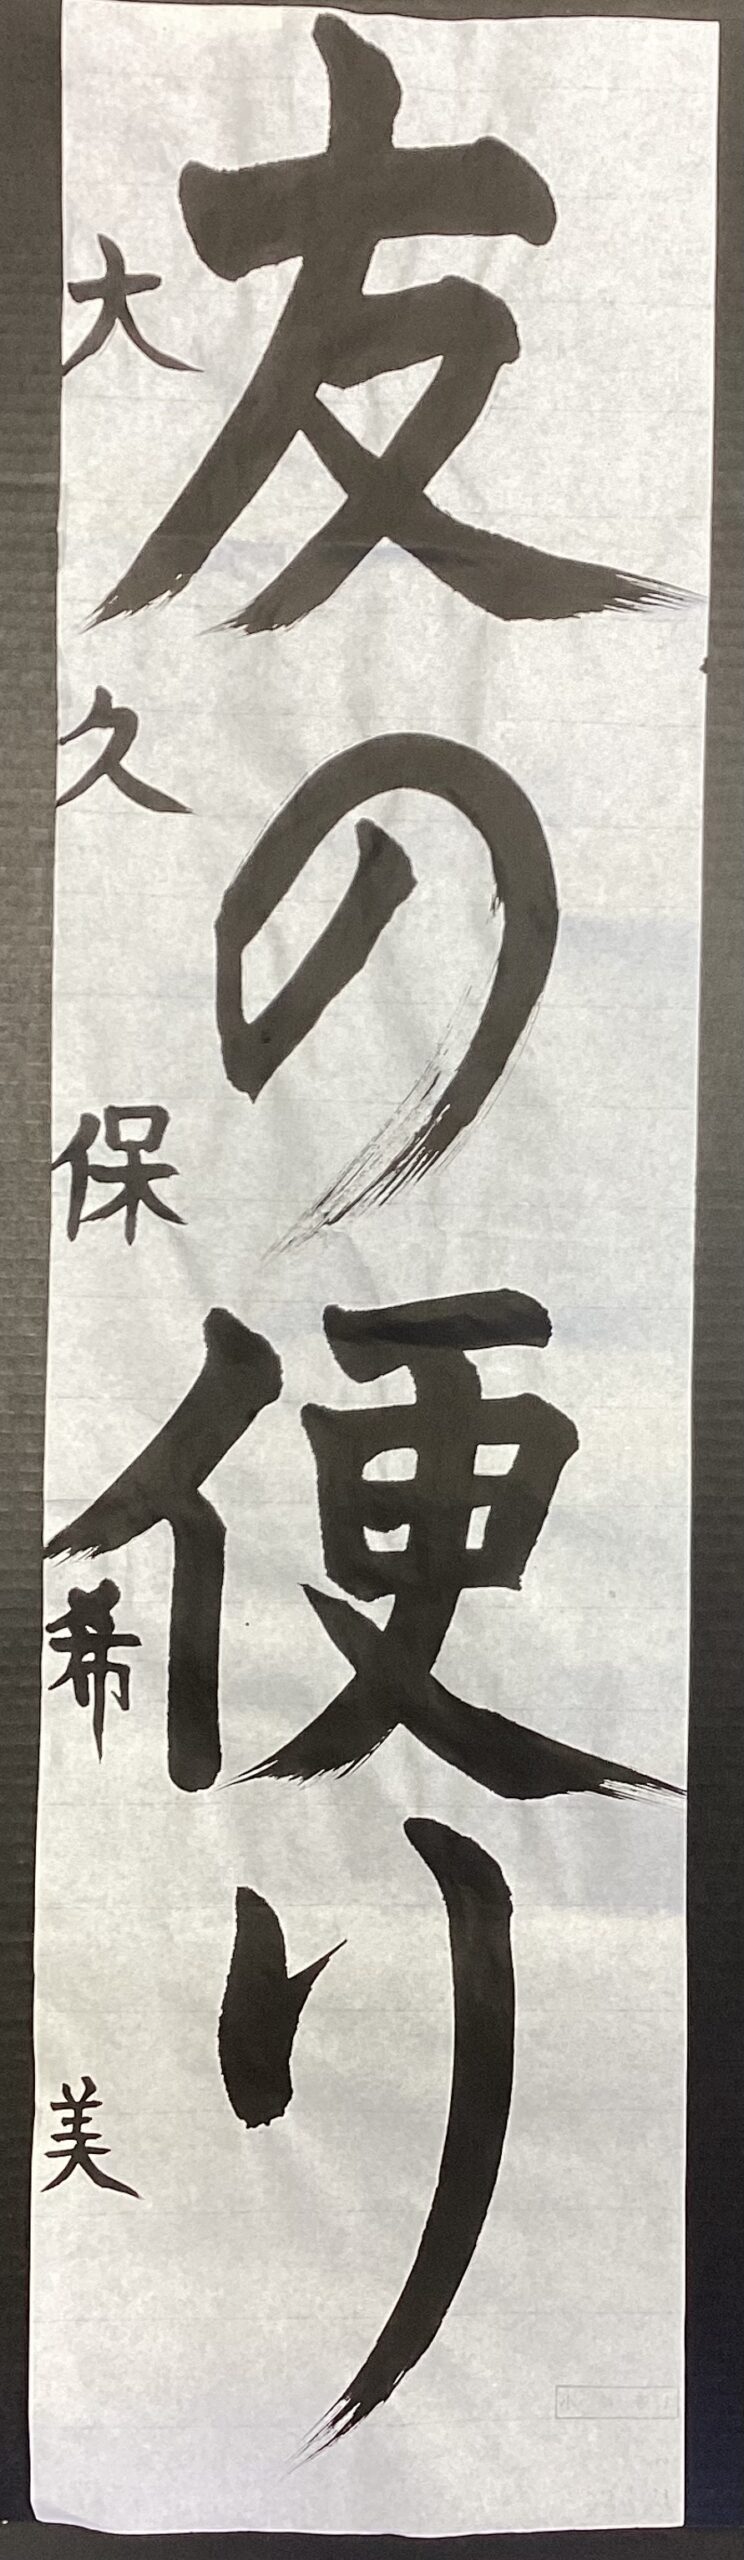 友の便り
大久保希美